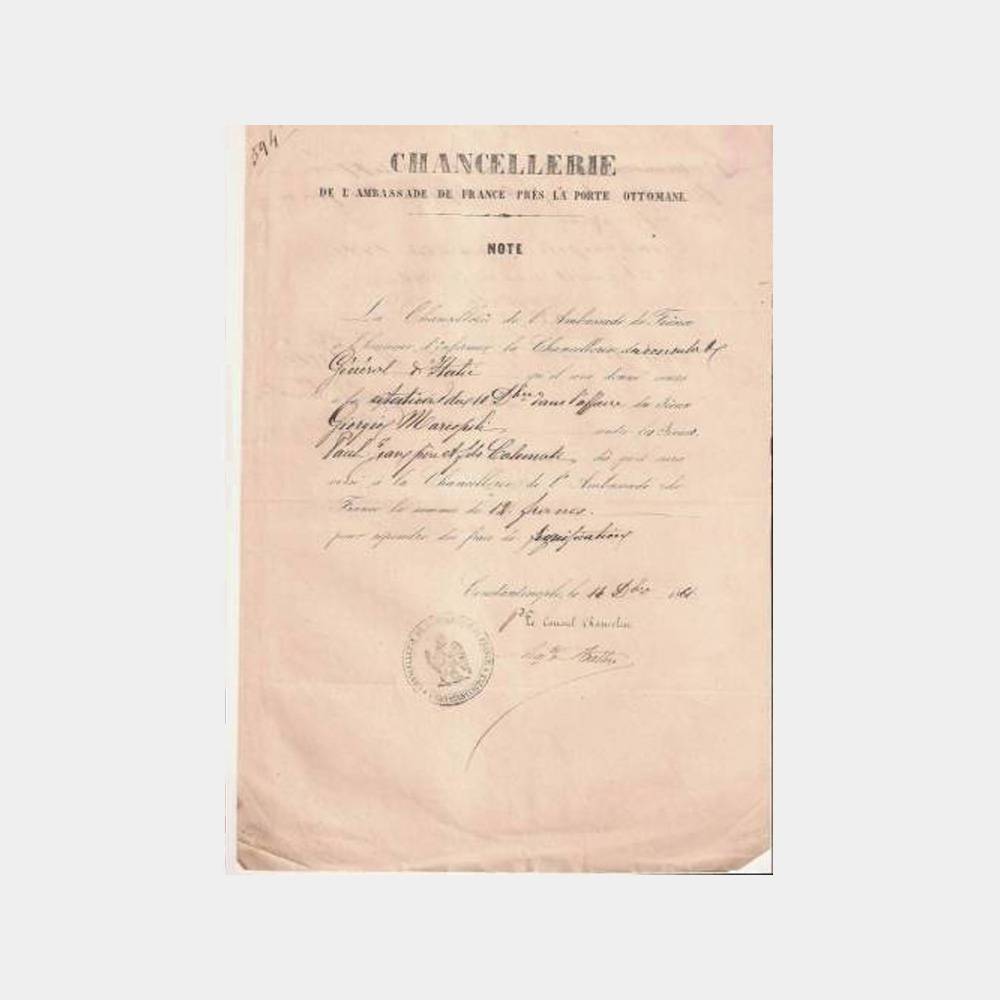 594
CHANCELLERIE
DE L'AMBASSADE DE FRANCE PRÈS LA PORTE OTTOMANE.
NOTE
La Chancellerie de l'Ambassade de France
a l'honneur d'informer la Chancellerie du consulat
Général d'Italie qu'il sera donné
à la citation du 10 Xbre dans l'affaire du Sieur
Giorgio contre les Sieurs
Paul Jean père et fils dès que sera
versé à la Chancellerie de l'Ambassade de
France la somme de 12 francs.
pour répondre des frais de signification
Constantinople, le 14 Xbre
Le Consul Chancelier